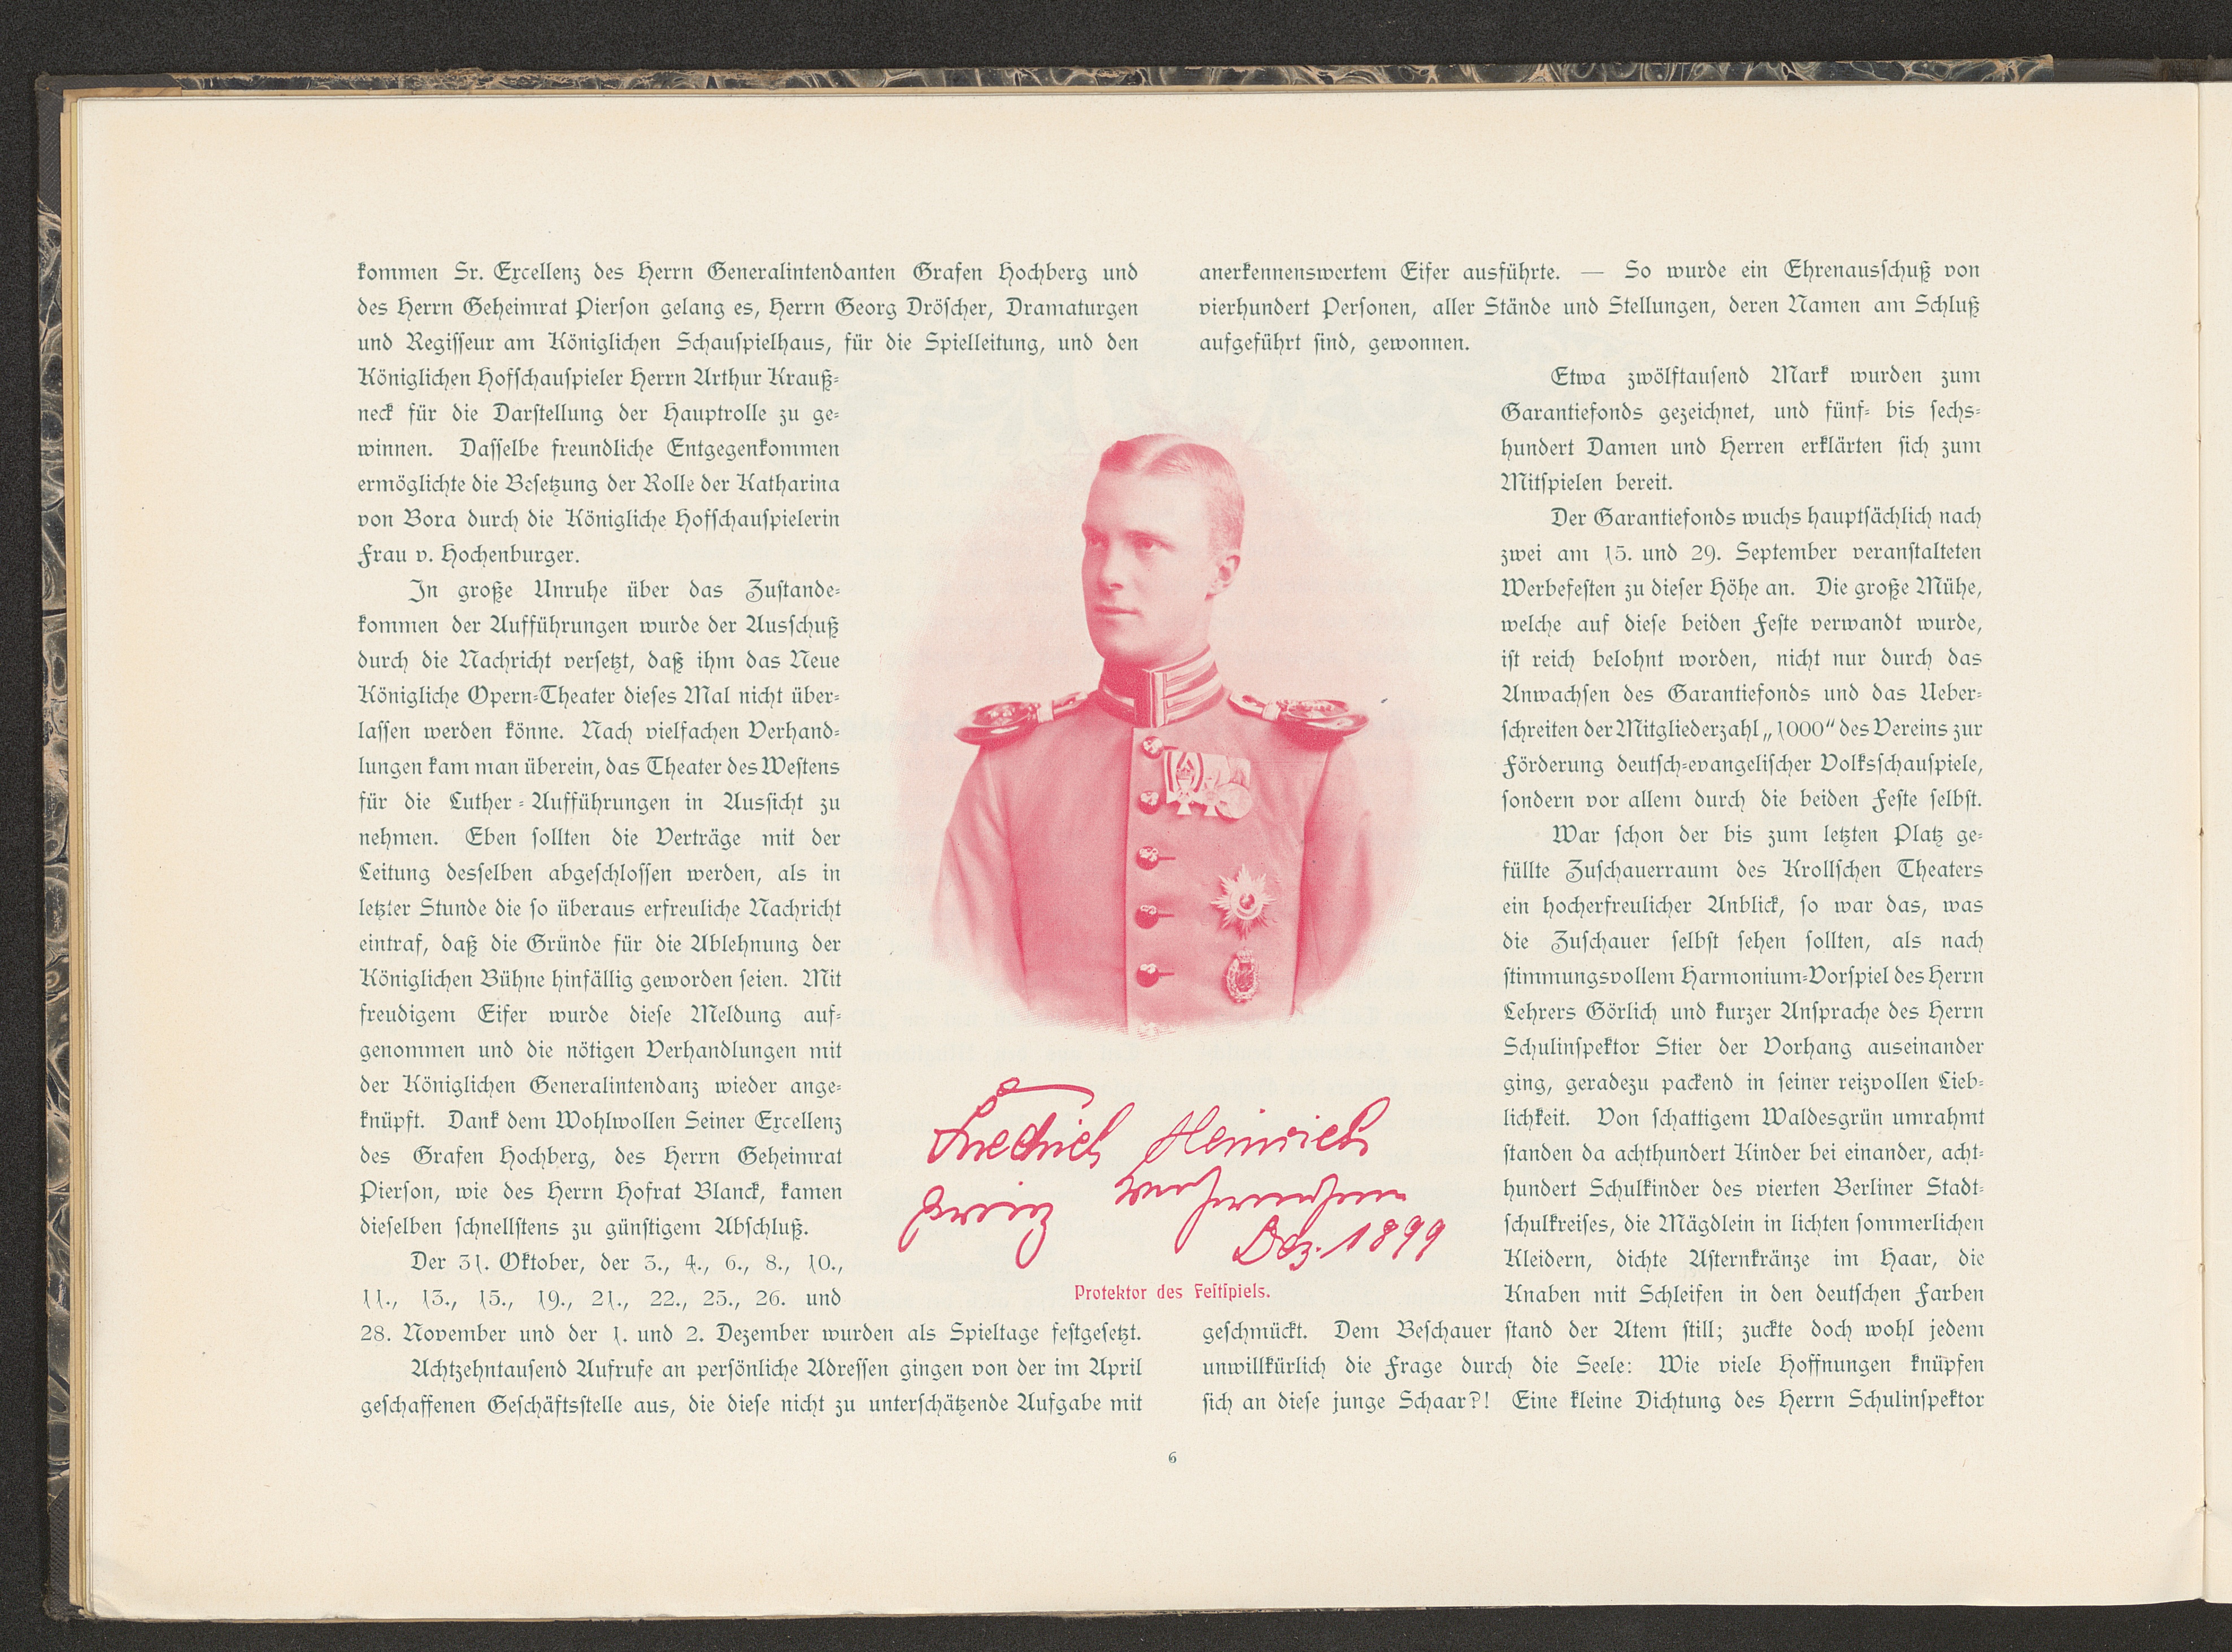 kommen Sr. Excellenz des Herrn Generalintendanten Grafen Hochberg und
des Herrn Geheimrat Pierſon gelang es, Herrn Georg Dröſcher, Dramaturgen
und Regiſſeur am Königlichen Schauſpielhaus, für die Spielleitung, und den
Königlichen Hofſchauſpieler Herrn Arthur Krauß-
neck für die Darſtellung der Hauptrolle zu ge-
winnen. Daſſelbe freundliche Entgegenkommen
ermöglichte die Beſetzung der Rolle der Katharina
von Bora durch die Königliche Hofſchauſpielerin
Frau v. Hochenburger.
In große Unruhe über das Zuſtande-
kommen der Aufführungen wurde der Ausſchuß
durch die Nachricht verſetzt, daß ihm das Neue
Königliche Opern-Theater dieſes Mal nicht über-
laſſen werden könne. Nach vielfachen Verhand-
lungen kam man überein, das Theater des Weſtens
für die Luther-Aufführungen in Ausſicht zu
nehmen. Eben ſollten die Verträge mit der
Leitung desſelben abgeſchloſſen werden, als in
letzter Stunde die ſo überaus erfreuliche Nachricht
eintraf, daß die Gründe für die Ablehnung der
Königlichen Bühne hinfällig geworden ſeien. Mit
freudigem Eifer wurde dieſe Meldung auf-
genommen und die nötigen Verhandlungen mit
der Königlichen Generalintendanz wieder ange-
knüpft. Dank dem Wohlwollen Seiner Excellenz
des Grafen Hochberg, des Herrn Geheimrat
Pierſon, wie des Herrn Hofrat Blanck, kamen
dieſelben ſchnellſtens zu günſtigem Abſchluß.
Der 31. Oktober, der 3., 4., 6., 8., 10.,
11., 13., 15., 19., 21., 22., 25., 26. und
28. November und der 1. und 2. Dezember wurden als Spieltage feſtgeſetzt.
Achtzehntauſend Aufrufe an perſönliche Adreſſen gingen von der im April
geſchaffenen Geſchäftsſtelle aus, die dieſe nicht zu unterſchätzende Aufgabe mit
Friedrich Heinrich
Prinz von Preußen
Dez. 1899
Protektor des Feſtſpiels.
anerkennenswertem Eifer ausführte. — So wurde ein Ehrenausſchuß von
vierhundert Perſonen, aller Stände und Stellungen, deren Namen am Schluß
aufgeführt ſind, gewonnen.
Etwa zwölftauſend Mark wurden zum
Garantiefonds gezeichnet, und fünf- bis ſechs-
hundert Damen und Herren erklärten ſich zum
Mitſpielen bereit.
Der Garantiefonds wuchs hauptſächlich nach
zwei am 15. und 29. September veranſtalteten
Werbefeſten zu dieſer Höhe an. Die große Mühe,
welche auf dieſe beiden Feſte verwandt wurde,
iſt reich belohnt worden, nicht nur durch das
Anwachſen des Garantiefonds und das Ueber-
ſchreiten der Mitgliederzahl „1000“ des Vereins zur
Förderung deutſch-evangeliſcher Volksſchauſpiele,
ſondern vor allem durch die beiden Feſte ſelbſt.
War ſchon der bis zum letzten Platz ge-
füllte Zuſchauerraum des Krollſchen Theaters
ein hocherfreulicher Anblick, ſo war das, was
die Zuſchauer ſelbſt ſehen ſollten, als nach
ſtimmungsvollem Harmonium-Vorſpiel des Herrn
Lehrers Görlich und kurzer Anſprache des Herrn
Schulinſpektor Stier der Vorhang auseinander
ging, geradezu packend in ſeiner reizvollen Lieb-
lichkeit. Von ſchattigem Waldesgrün umrahmt
ſtanden da achthundert Kinder bei einander, acht-
hundert Schulkinder des vierten Berliner Stadt-
ſchulkreiſes, die Mägdlein in lichten ſommerlichen
Kleidern, dichte Aſternkränze im Haar, die
Knaben mit Schleifen in den deutſchen Farben
geſchmückt. Dem Beſchauer ſtand der Atem ſtill; zuckte doch wohl jedem
unwillkürlich die Frage durch die Seele: Wie viele Hoffnungen knüpfen
ſich an dieſe junge Schaar?! Eine kleine Dichtung des Herrn Schulinſpektor
6